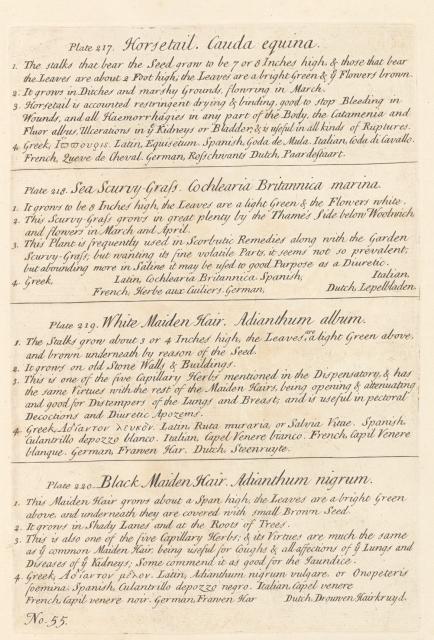 Plate 217. Horsetail. Cauda equina.
1. The stalks that bear the Seed grow to be 7 or 8 Inches high, & those that bear
the Leaves are about 2 Foot high; the Leaves are a bright Green & ẙ Flowers brown.
2. It grows in Ditches and marshy Grounds, flowring in March.
3. Horsetail is accounted restringent drying & binding, good to stop Bleeding in
Wounds, and all Haemorrhages in any part of the Body, the Catamenia and
Fluor albus, Ulcerations in ẙ Kidneys or Bladder, & is useful in all kinds of Ruptures.
4. Greek, Latin, Equisetum. Spanish, Goda de Mula. Italian, Coda di Cavallo.
French, Queve de Cheval. German, Rossschwants Dutch, Paardestaart.
Plate 218. Sea Scurvy-Grass. Cochlearia Britannica marina.
1. It grows to be 8 Inches high, the Leaves are a light Green & the Flowers white.
2. This Scurvy-Grass grows in great plenty by the Thames Side below Woolwich
and flowers in March and April.
3. This Plant is frequently used in Scorbutic Remedies along with the Garden
Scurvy-Grass; but wanting its fine volatile Parts, it seems not so prevalent;
but abounding more in Saline it may be used to good Purpose as a Diuretic.
4. Greek, Latin, Cochlearia Britannica. Spanish, Italian,
French, Herbe aux Cuiliers. German, Dutch, Lepelbladen.
Plate 219. White Maiden Hair. Adianthum album.
1. The Stalks grow about 3 or 4 Inches high, the Leaves are a light Green above,
and brown underneath by reason of the Seed.
2. It grows on old Stone Walls & Buildings.
3. This is one of the five Capillary Herbs mentioned in the Dispensatory, & has
the same Virtues with the rest of the Maiden Hairs, being opening & attenuating
and good for Distempers of the Lungs and Breast; and is useful in pectoral
Decoctions and Diuretic Apozems.
4. Greek, Αδίαντον λευκόν. Latin, Ruta muraria, or Salvia Vitae. Spanish,
Culantrillo depozzo blanco. Italian, Capel Venere bianco. French, Capil Venere
blanque. German, Frawen Har. Dutch, Steenruyte.
Plate 220. Black Maiden Hair. Adianthum nigrum.
1. This Maiden Hair grows about a Span high, the Leaves are a bright Green
above, and underneath they are covered with small Brown Seed.
2. It grows in Shady Lanes and at the Roots of Trees.
3. This is also one of the five Capillary Herbs; & its Virtues are much the same
as ẙ common Maiden Hair, being useful for Coughs & all affections of ẙ Lungs and
Diseases of ẙ Kidneys; Some commend it as good for the Jaundice.
4. Greek, Αδίαντον μέλαν. Latin, Adianthum nigrum vulgare, or Onopeteris
foemina. Spanish, Culantrillo depozzo negro. Italian, Capel venere
French, Capil venere noir. German, Frawen Har Dutch, Drouwen Hairkruyd.
No. 55.